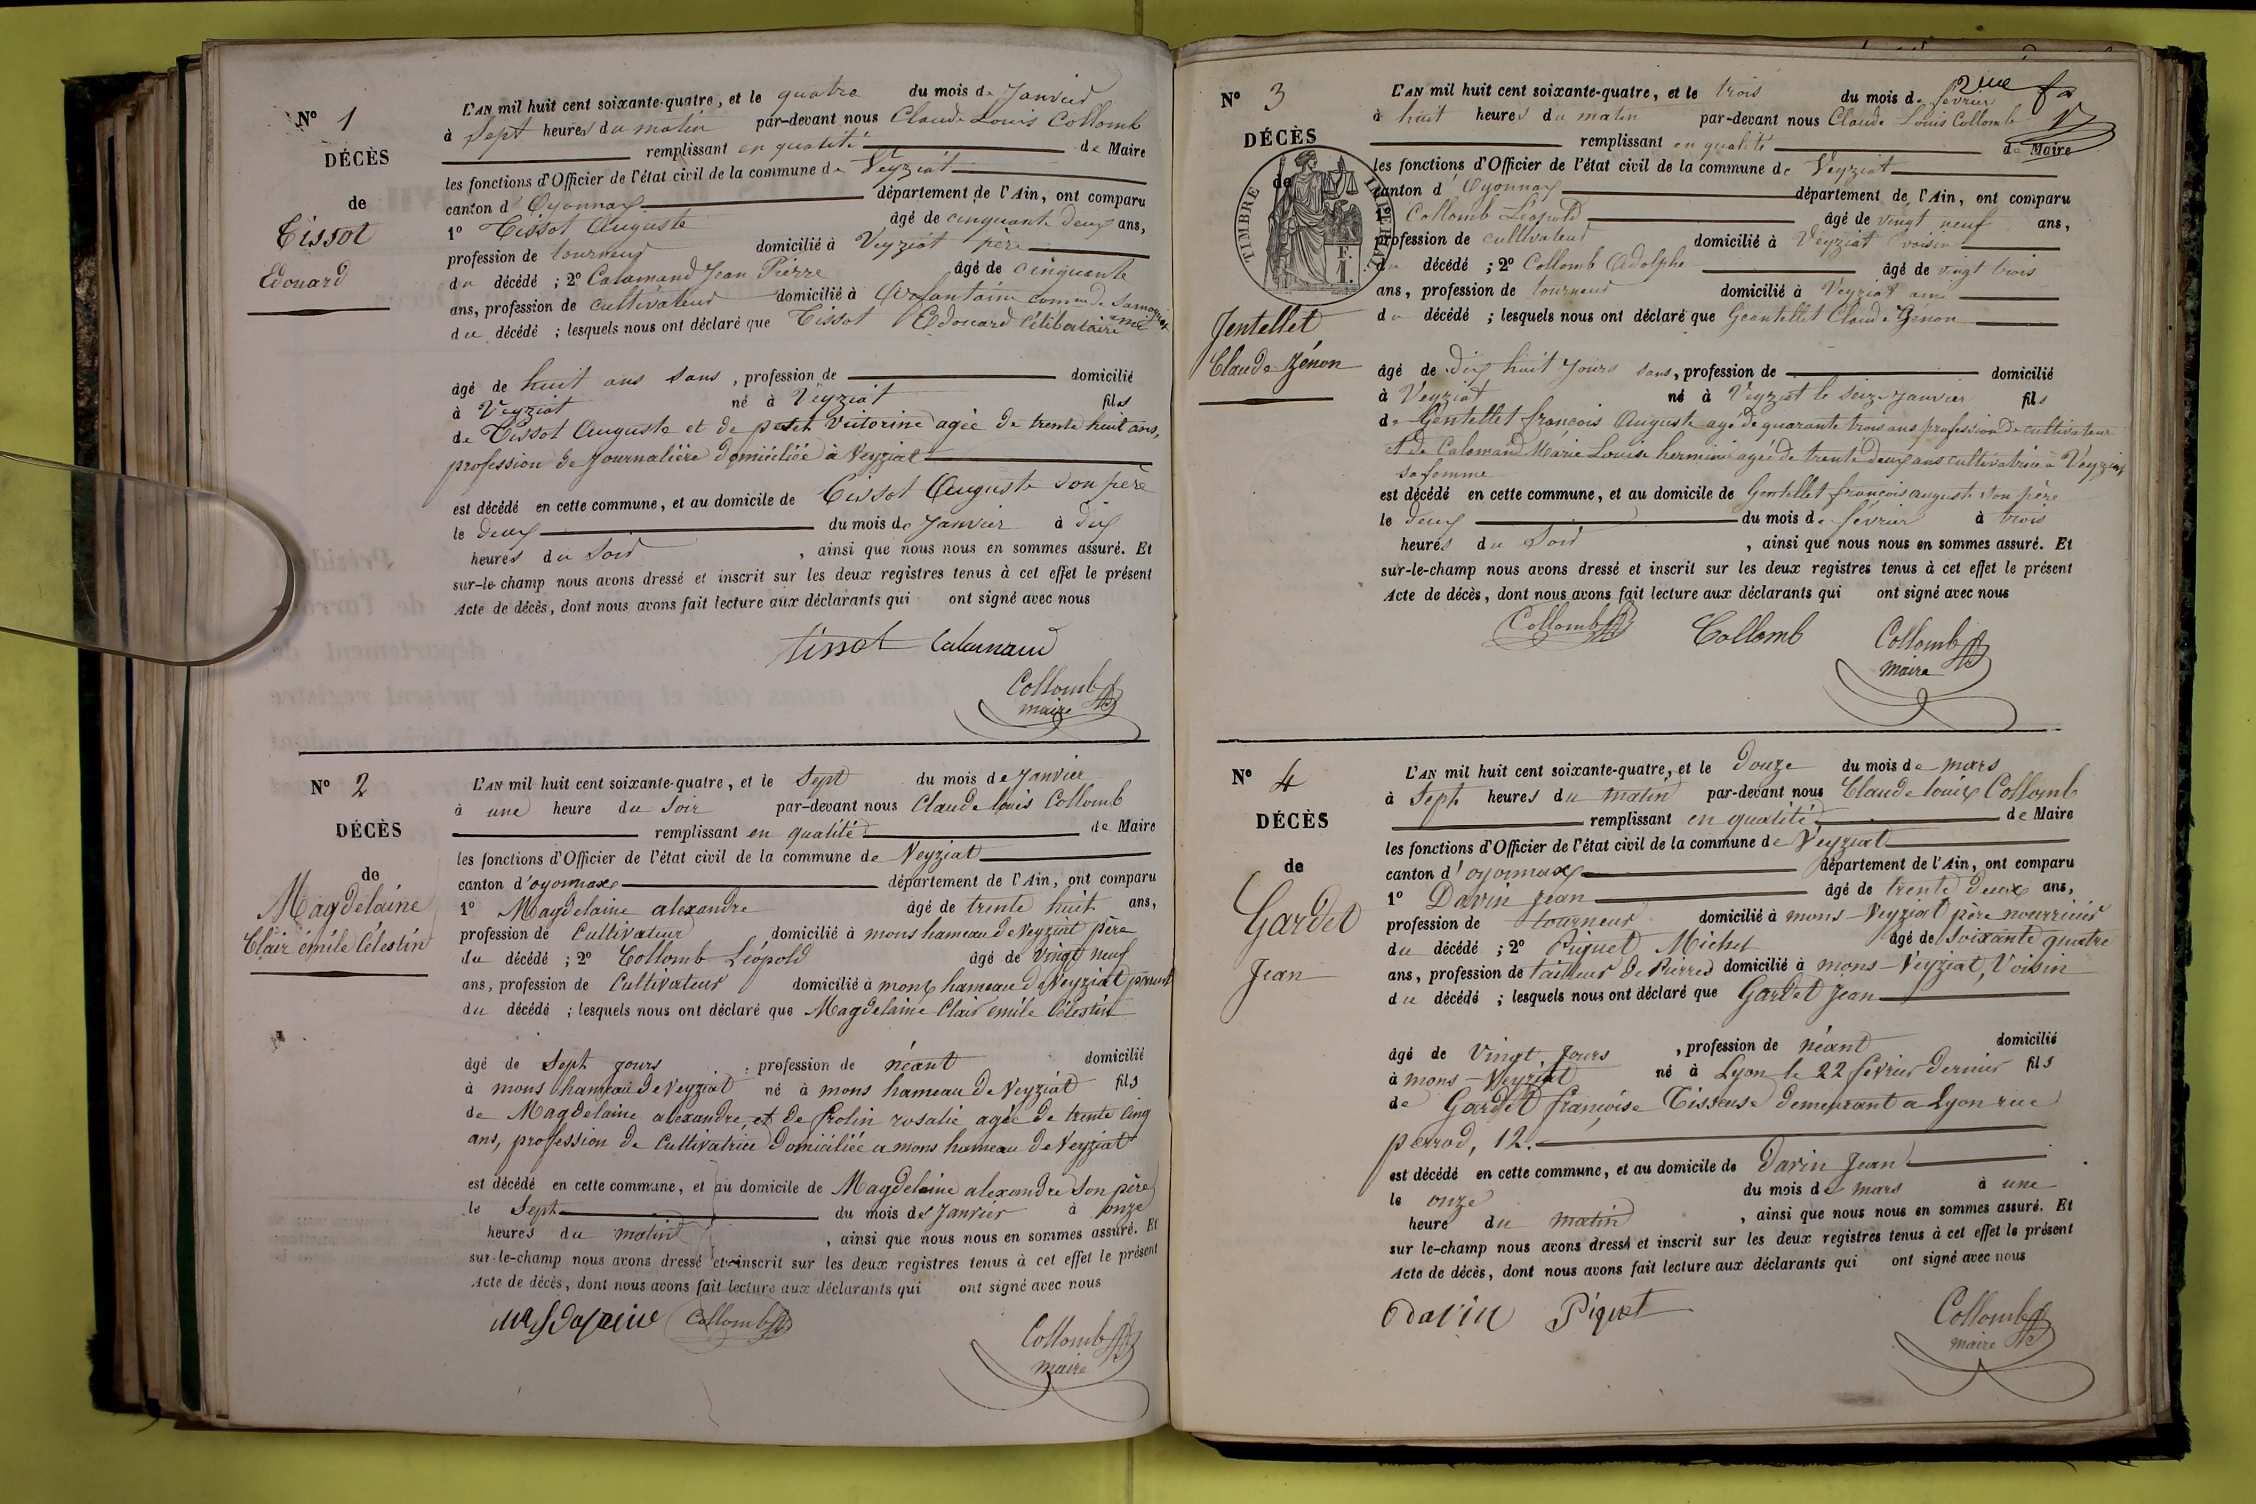 N° 1
DÉCÈS
de
Tissot
Edouard
L'AN mil huit cent soixante-quatre, et le quatre du mois de Janvier
à sept heures du matin par-devant nous Claude Louis Collomb
remplissant en qualité de Maire
les fonctions d'Officier de l'état civil de la commune de Veyziat
canton d'Oyonnax département de l'Ain, ont comparu
1° Tissot Auguste âgé de cinquante deux ans,
profession de tourneur domicilié à Veyziat père
du décédé ; 2° Calamand Jean Pierre âgé de cinquante
ans, profession de cultivateur domicilié à
du décédé ; lesquels nous ont déclaré que Tissot Edouard Célibataire
âgé de huit ans sans, profession de domicilié
à Veyziat né à Veyziat fils
de Tissot Auguste et de petit Victorine agée de trente huit ans,
profession de journalière domiciliée à Veyziat
est décédé en cette commune, et au domicile de Tissot Auguste son père
le deux du mois de Janvier à dix
heures du soir, ainsi que nous nous en sommes assuré. Et
sur-le-champ nous avons dressé et inscrit sur les deux registres tenus à cet effet le présent
Acte de décès, dont nous avons fait lecture aux déclarants qui ont signé avec nous
tissot Calamand
Collomb
maire
N° 2
DÉCÈS
de
Magdelaine
Clair émile Célestin
L'AN mil huit cent soixante-quatre, et le sept du mois de Janvier
à une heure du soir par-devant nous Claude louis Collomb
remplissant en qualité de Maire
les fonctions d'Officier de l'état civil de la commune de Veyziat
canton d'oyonnax département de l'Ain, ont comparu
1° Magdelaine alexandre âgé de trente huit ans,
profession de Cultivateur domicilié à mons hameau de Veyziat père
du décédé ; 2° Collomb Léopold âgé de vingt neuf
ans, profession de Cultivateur domicilié à mons hameau de Veyziat parent
du décédé ; lesquels nous ont déclaré que Magdelaine Clair émile Célestin
âgé de sept jours, profession de néant domicilié
à mons hameau de Veyziat né à mons hameau de Veyziat fils
de Magdelaine alexandre, et de rosalie agée de trente cinq
ans, profession de Cultivatrice domiciliée a mons hameau de Veyziat
est décédé en cette commune, et au domicile de Magdelaine alexandre son père
le sept du mois de Janvier à onze
heures du matin, ainsi que nous nous en sommes assuré. Et
sur-le-champ nous avons dressé et inscrit sur les deux registres tenus à cet effet le présent
Acte de décès, dont nous avons fait lecture aux déclarants qui ont signé avec nous
Magdelaine Collomb
Collomb
maire
2me
N° 3
DÉCÈS
de
TIMBRE IMPÉRIAL
Jentellet
Claude Zénon
L'AN mil huit cent soixante-quatre, et le trois du mois de février
à huit heures du matin par-devant nous Claude Louis Collomb
remplissant en qualité de Maire
les fonctions d'Officier de l'état civil de la commune de Veyziat
canton d'Oyonnax département de l'Ain, ont comparu
1° Collomb Léopold âgé de vingt neuf ans,
profession de cultivateur domicilié à Veyziat voisin
du décédé ; 2° Collomb Adolphe âgé de vingt trois
ans, profession de tourneur domicilié à Veyziat ami
du décédé ; lesquels nous ont déclaré que Gentellet Claude Zénon
âgé de dix huit jours sans, profession de domicilié
à Veyziat né à Veyziat le seize janvier fils
de Gentellet françois Auguste agé de quarante trois ans profession de cultivateur
et de Calamand Marie Louise hermine agée de trente deux ans cultivatrice à Veyziat
sa femme
est décédé en cette commune, et au domicile de Gentellet francois auguste son père
le deux du mois de février à trois
heures du soir, ainsi que nous nous en sommes assuré. Et
sur-le-champ nous avons dressé et inscrit sur les deux registres tenus à cet effet le présent
Acte de décès, dont nous avons fait lecture aux déclarants qui ont signé avec nous
Collomb Collomb Collomb
maire
N° 4
DÉCÈS
de
Gardet
Jean
L'AN mil huit cent soixante-quatre, et le douze du mois de mars
à sept heures du matin par-devant nous Claude louis Collomb
remplissant en qualité de Maire
les fonctions d'Officier de l'état civil de la commune de Veyziat
canton d'oyonnax département de l'Ain, ont comparu
1° Davin Jean âgé de trente deux ans,
profession de tourneur domicilié à mons-Veyziat père nourricier
du décédé ; 2° Piquet Michel âgé de soixante quatre
ans, profession de tailleur de Pierres domicilié à mons-Veyziat, Voisin
du décédé ; lesquels nous ont déclaré que Gardet Jean
âgé de vingt jours, profession de néant domicilié
à mons-Veyziat né à Lyon le 22 février dernier fils
de Gardet françoise Tisseuse demeurant a Lyon rue
perrod, 12.
est décédé en cette commune, et au domicile de Davin Jean
le onze du mois de mars à une
heure du matin, ainsi que nous nous en sommes assuré. Et
sur le-champ nous avons dressé et inscrit sur les deux registres tenus à cet effet le présent
Acte de décès, dont nous avons fait lecture aux déclarants qui ont signé avec nous
Davin Piquet Collomb
maire